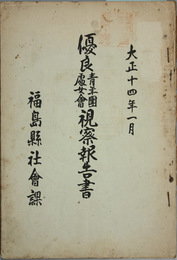 大正十四年一月
優良青年團處女會視察報告書
福島縣社會課